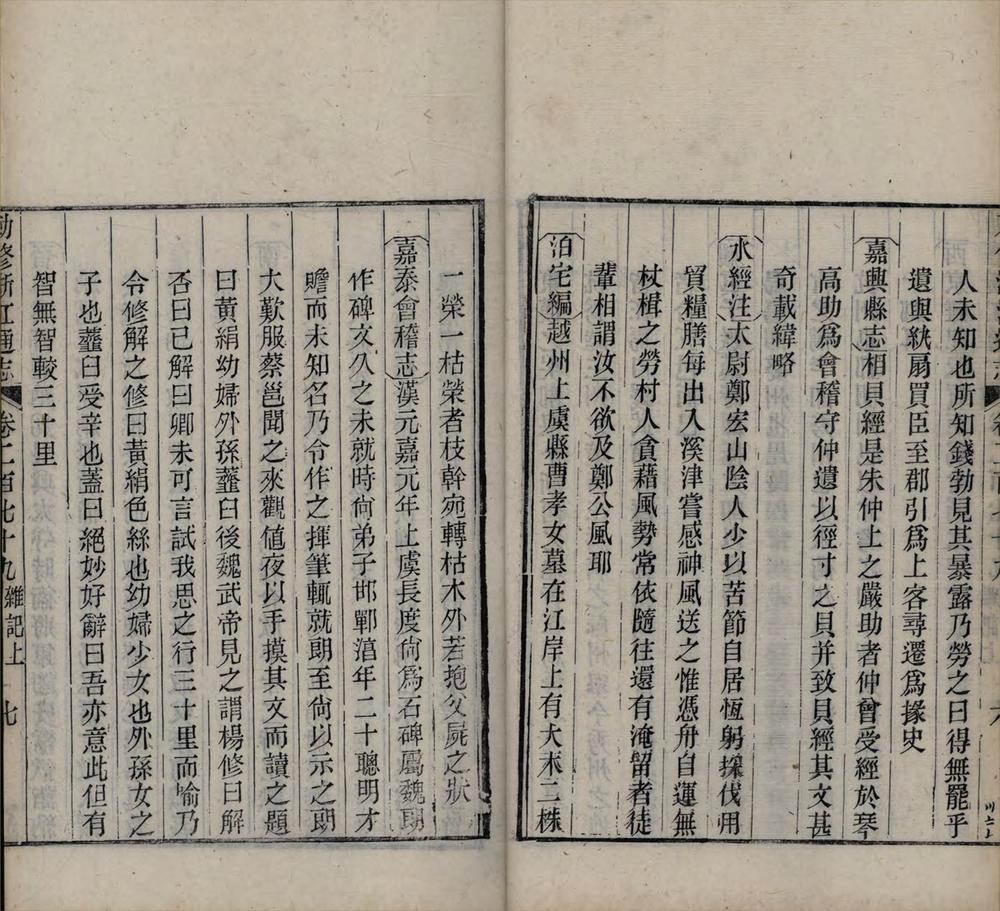 人未知也所知錢勃見其暴露乃勞之曰得無罷乎
遺與紈扇買臣至郡引爲上客尋遷爲掾史
嘉興縣志相貝經是朱仲上之嚴助者仲嘗受經於琴
高助爲會稽守仲遺以徑寸之貝并致貝經其文甚
奇載緯略
水經注太尉鄭宏山陰人少以苦節自居恆躬採伐用
貿糧膳每出入溪津嘗感神風送之惟憑舟自運無
杖楫之勞村人貪藉風勢常依隨往還有淹留者徒
輩相謂汝不欲及鄭公風耶
泊宅編越州上虞縣曹孝女墓在江岸上有大木二株
一榮一枯榮者枝幹宛轉枯木外若抱父屍之狀
嘉泰會稽志漢元嘉元年上虞長度尙爲石碑屬魏朗
作碑文久之未就時尙弟子邯鄲湻年二十聰明才
贍而未知名乃令作之揮筆輒就朗至尙以示之朗
大歎服蔡邕聞之來觀値夜以手摸其文而讀之題
曰黃絹幼婦外孫虀臼後魏武帝見之謂楊修曰解
否曰已解曰卿未可言試我思之行三十里而喻乃
令修解之修曰黃絹色絲也幼婦少女也外孫女之
子也虀臼受辛也蓋曰絕妙好辭曰吾亦意此但有
智無智較三十里
勅修浙江通志 卷二百七十九 雜記上 七